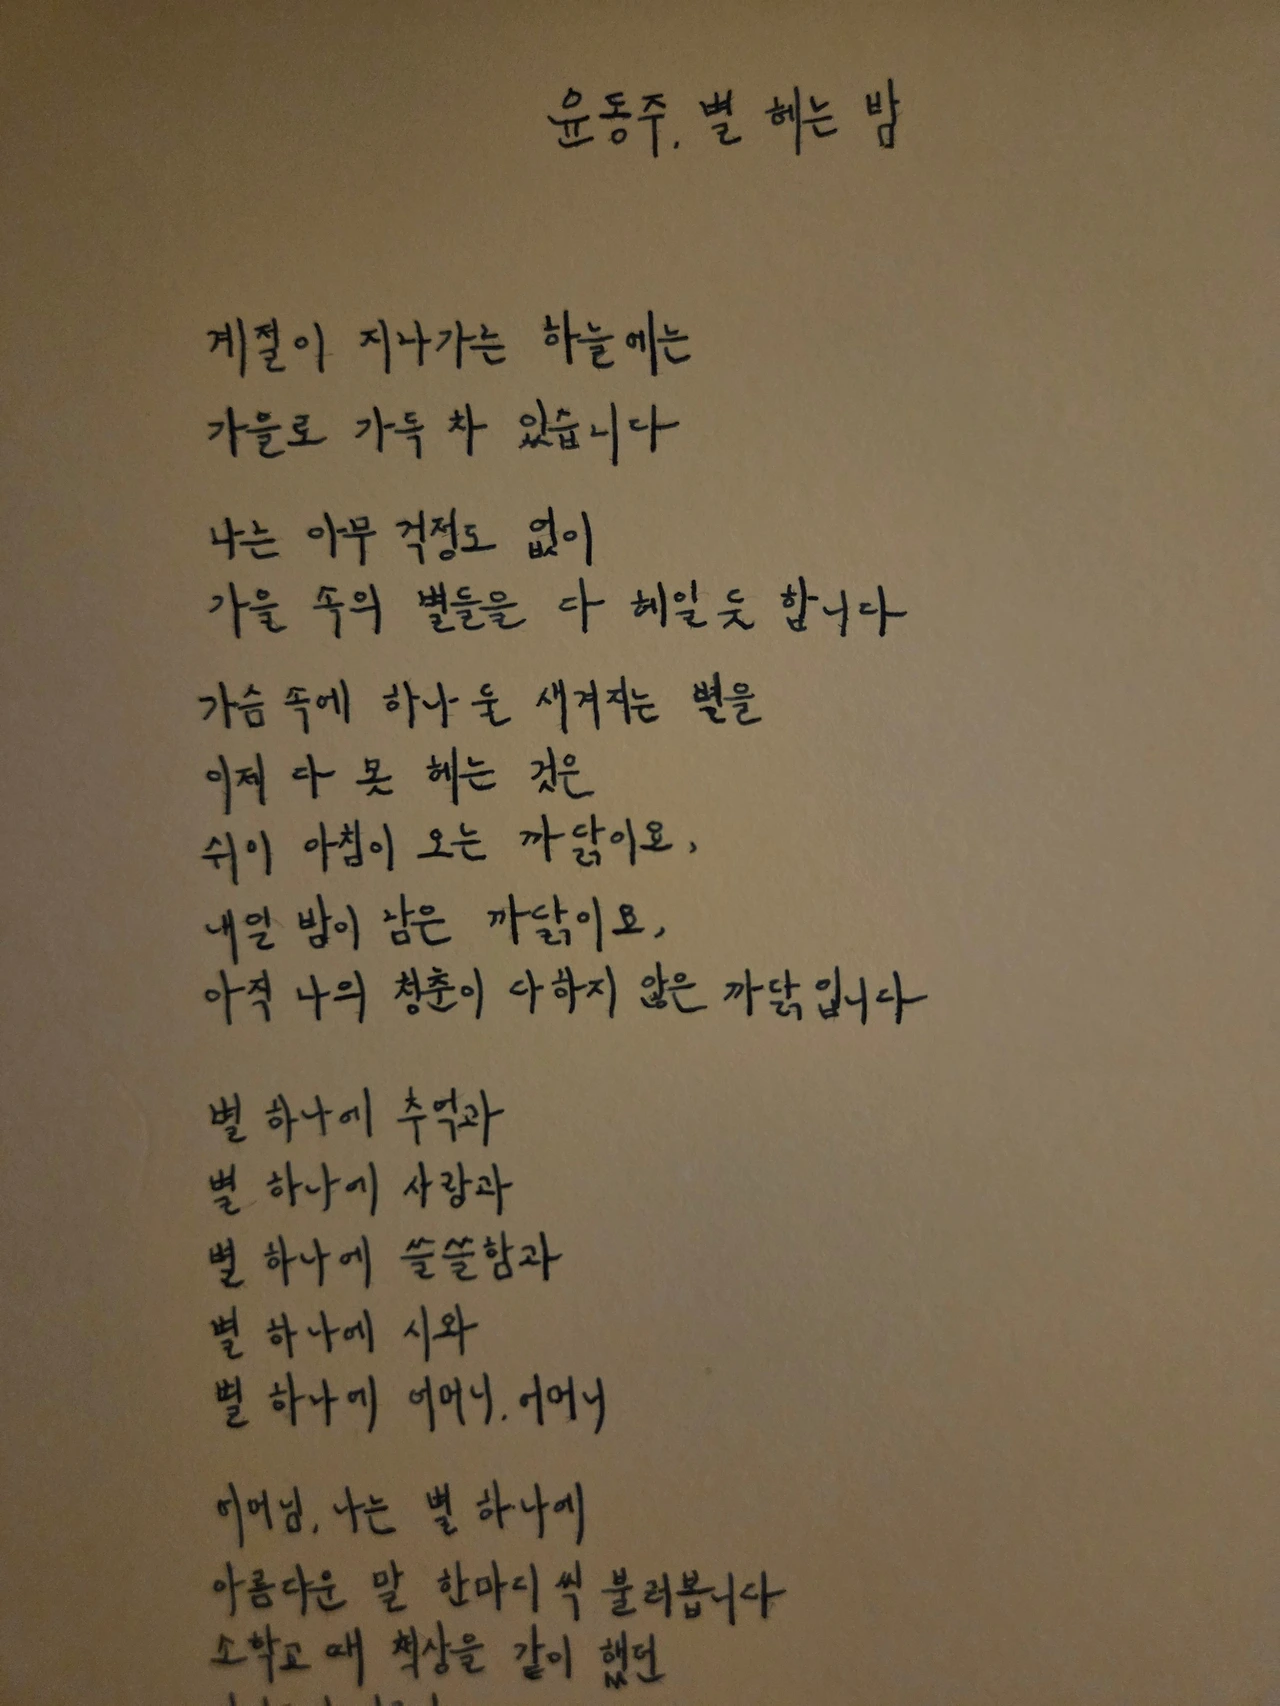 윤동주, 별 헤는 밤
계절이 지나가는 하늘에는
가을로 가득 차 있습니다
나는 아무 걱정도 없이
가을 속의 별들을 다 헤일 듯 합니다
가슴 속에 하나 둘 새겨지는 별을
이제 다 못 헤는 것은
쉬이 아침이 오는 까닭이요,
내일 밤이 남은 까닭이요,
아직 나의 청춘이 다하지 않은 까닭입니다
별 하나에 추억과
별 하나에 사랑과
별 하나에 쓸쓸함과
별 하나에 시와
별 하나에 어머니, 어머니
어머님, 나는 별 하나에
아름다운 말 한마디씩 불러봅니다
소학교 때 책상을 같이 했던